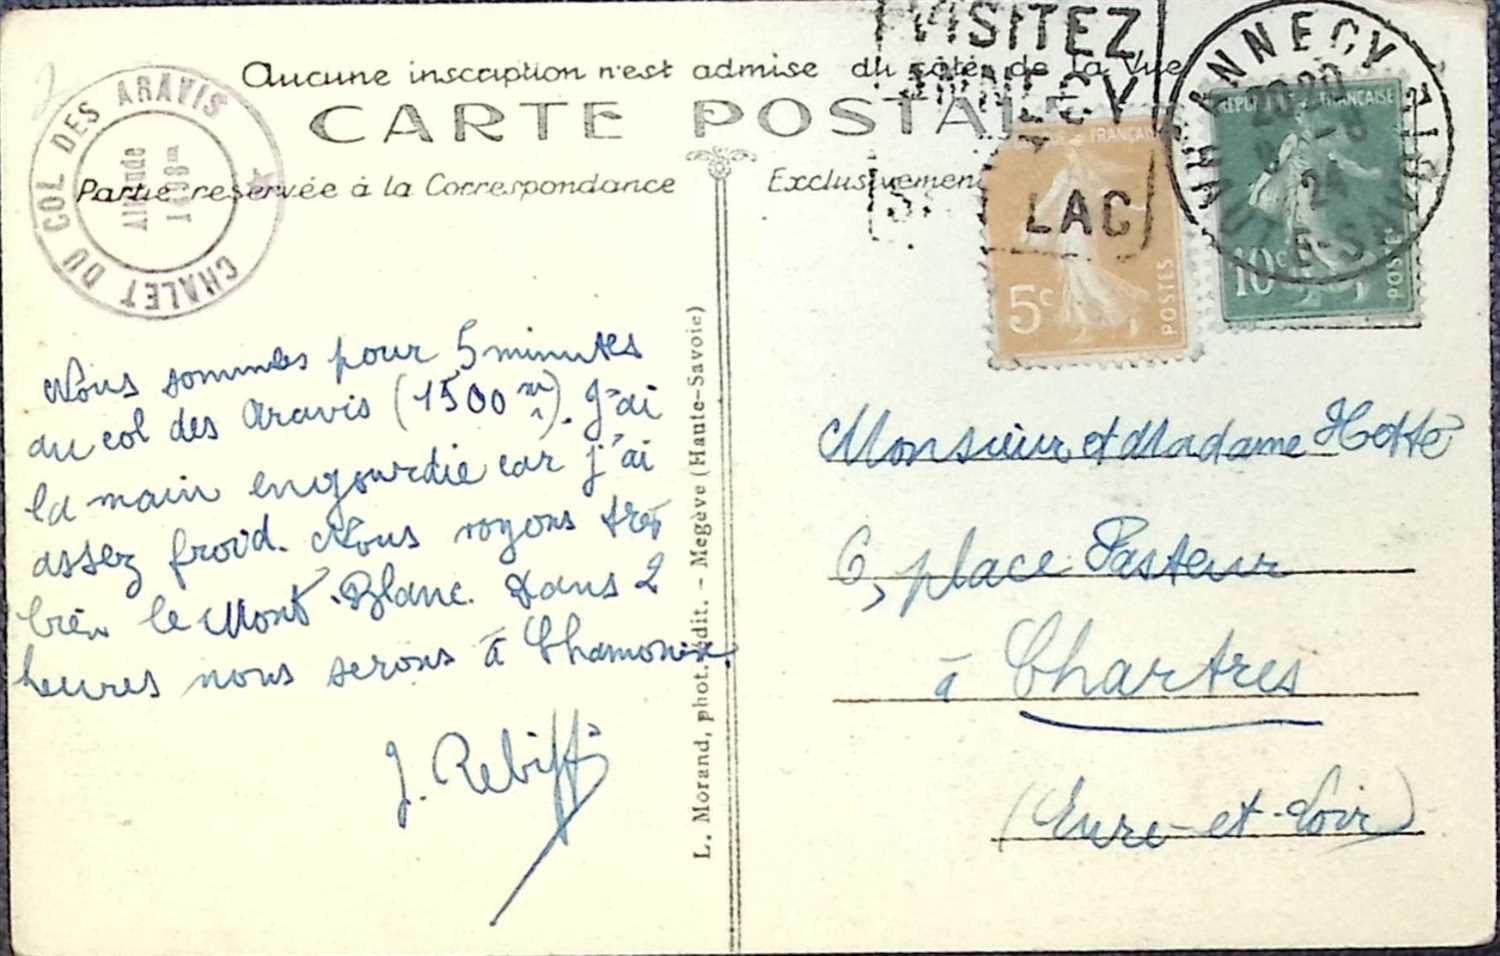 Aucune inscription n'est admise du côté de la Vue
CARTE POSTALE
Partie reservée à la Correspondance
Exclusivement
CHALET DU COL DES ARAVIS
Altitude
1498m
VISITEZ
ANNECY
LAC
ANNECY
20 30
24
HAUTE-SAVOIE
REPUBLIQUE FRANÇAISE
5c
POSTES
REPUBLIQUE FRANÇAISE
10c
POSTES
Nous sommes pour 5 minutes
au col des Aravis (1500 m). J'ai
la main engourdie car j'ai
assez froid. Nous voyons très
bien le Mont Blanc. Dans 2
heures nous serons à Chamonix.
J. Rebiffé
L. Morand, phot. édit. - Megève (Haute-Savoie)
Monsieur et Madame Hotté
6, place Pasteur
à Chartres
(Eure-et-Loir)